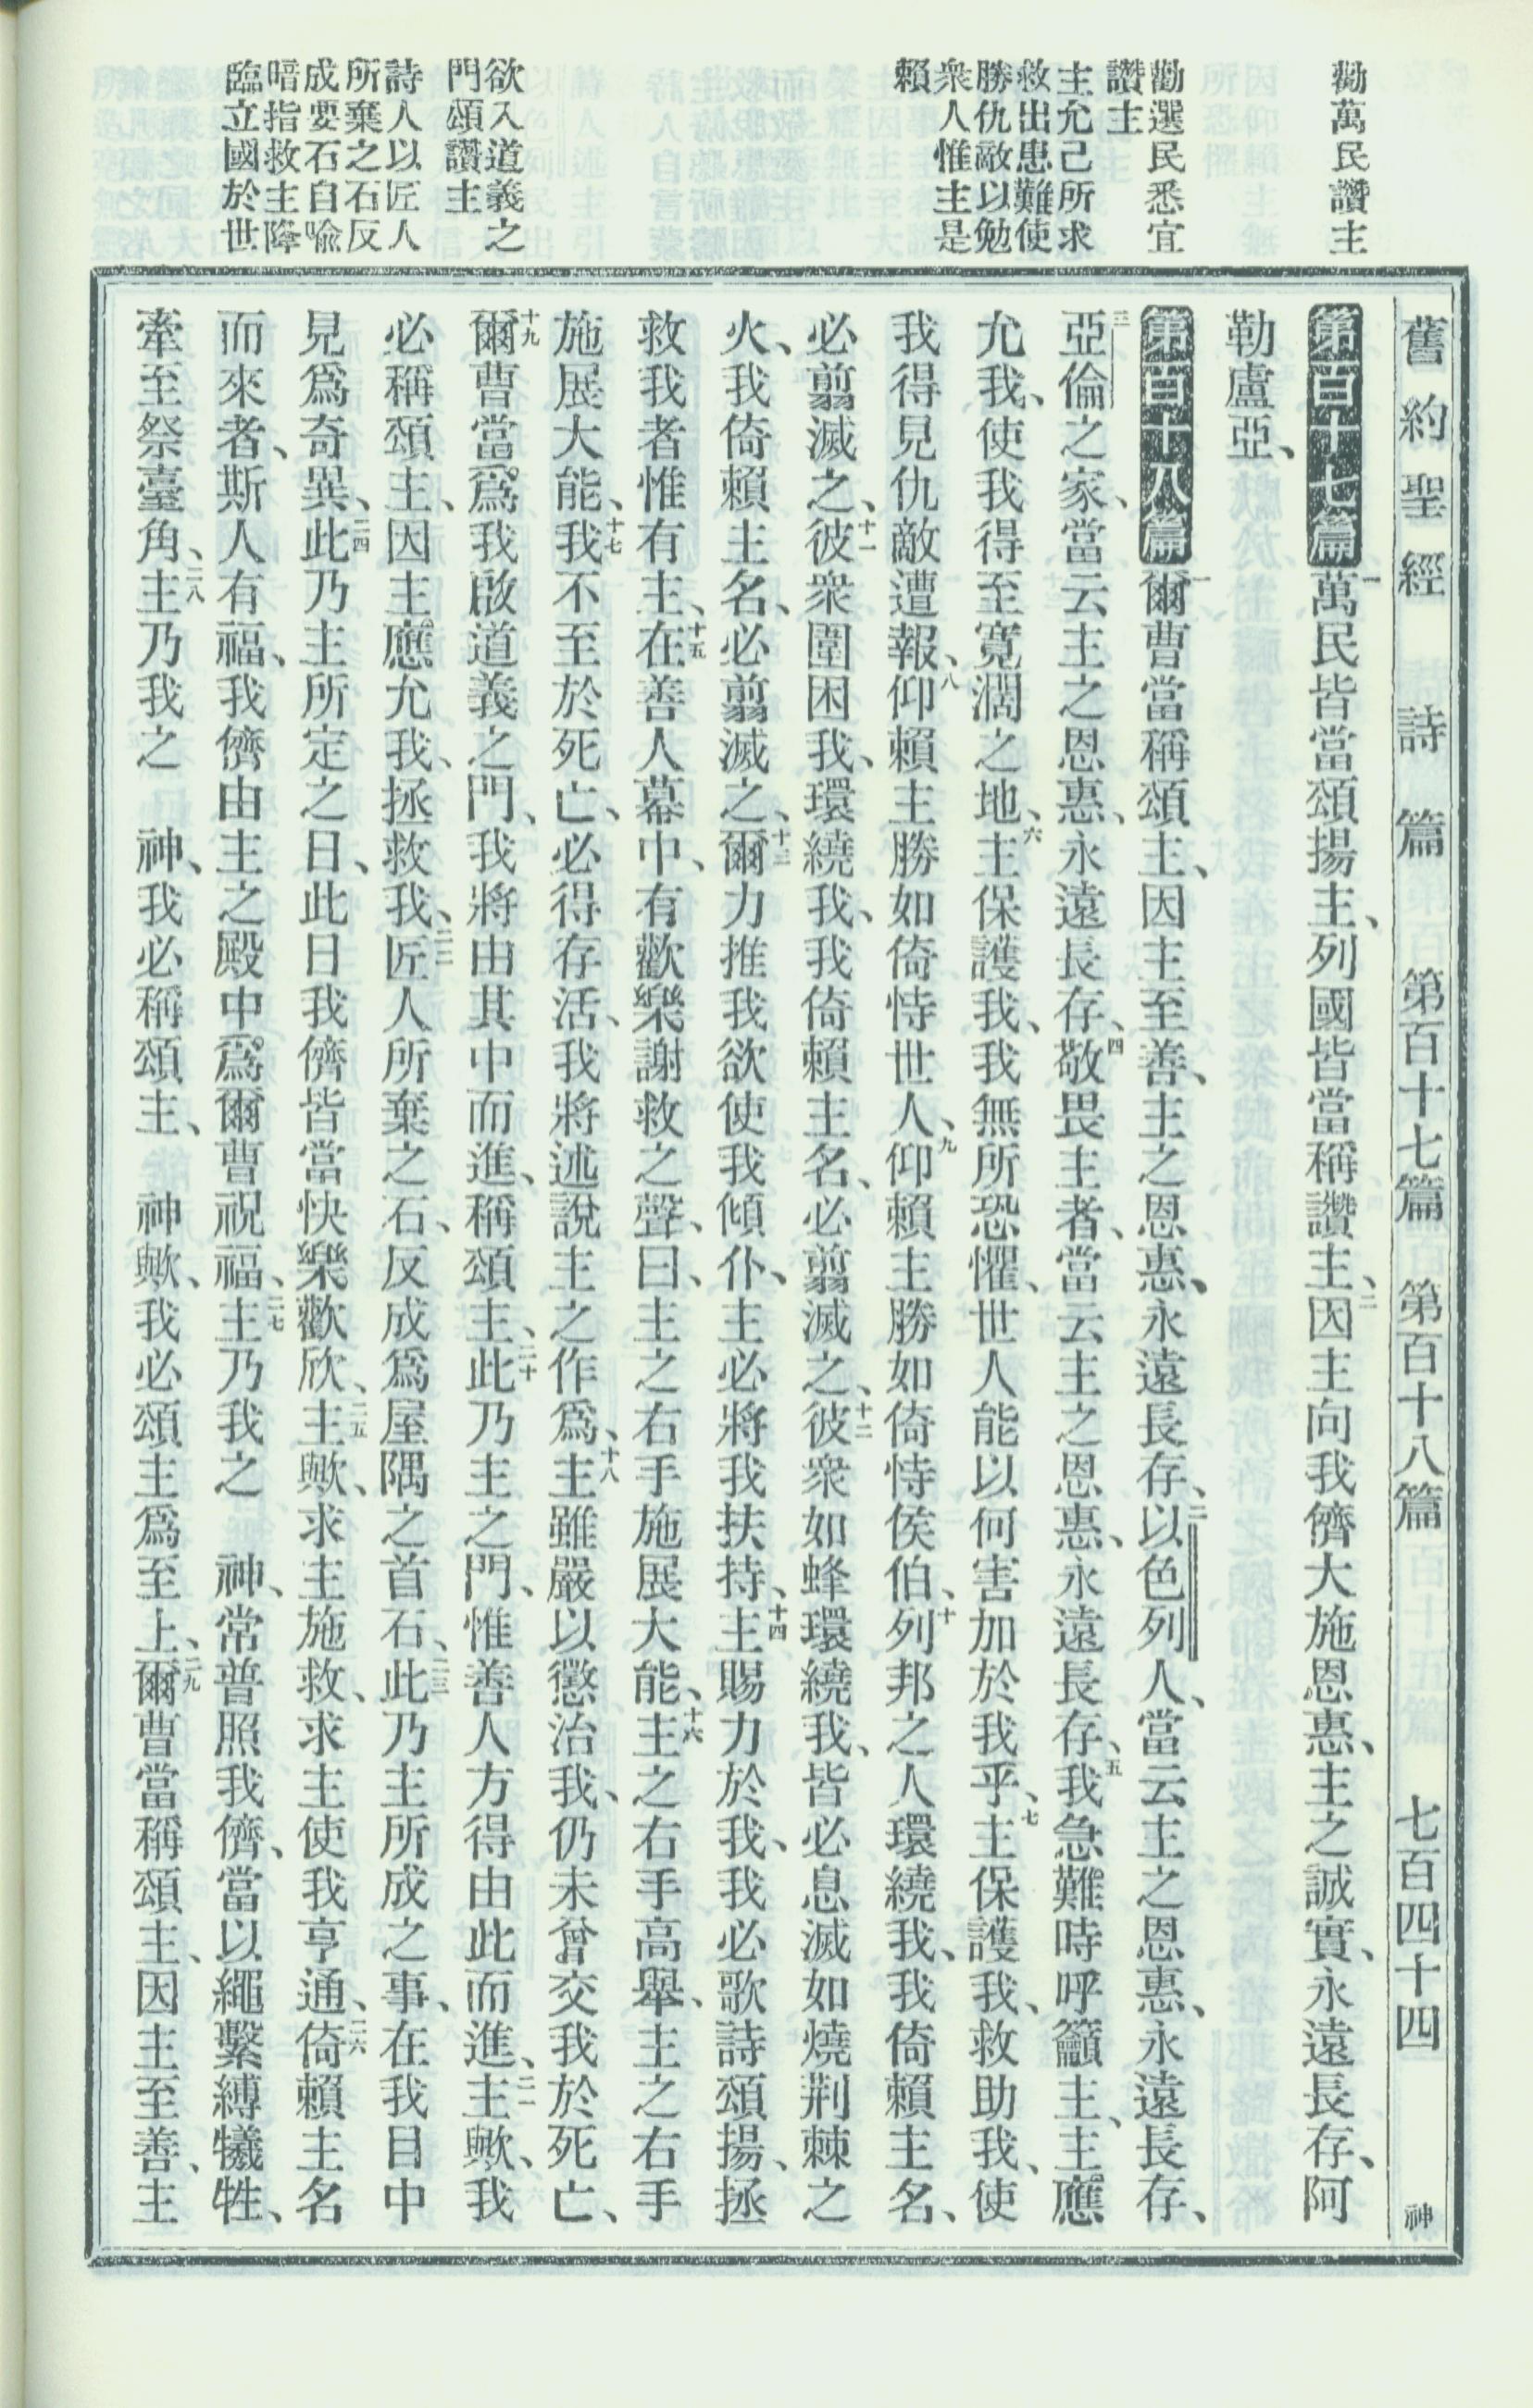 舊約聖經 詩篇 第百十七篇 第百十八篇 七百四十四 神
勸萬民讚主
勸選民悉宜
讚主
主允己所求
救出患難使
勝仇敵以勉
衆人惟主是
賴
欲入道義之
門頌讚主
詩人以匠人
所棄之石反
成要石自喻
暗指救主降
臨立國於世
第百十七篇 一萬民皆當頌揚主、列國皆當稱讚主、二因主向我儕大施恩惠、主之誠實、永遠長存、阿
勒盧亞、
第百十八篇 一爾曹當稱頌主、因主至善、主之恩惠、永遠長存、二以色列人、當云主之恩惠、永遠長存、
三亞倫之家、當云主之恩惠、永遠長存、四敬畏主者、當云主之恩惠、永遠長存、五我急難時呼籲主、主應
允我、使我得至寬濶之地、六主保護我、我無所恐懼、世人能以何害加於我乎、七主保護我、救助我、使
我得見仇敵遭報、八仰賴主勝如倚恃世人、九仰賴主勝如倚恃侯伯、十列邦之人環繞我、我倚賴主名、
必翦滅之、十一彼衆圍困我、環繞我、我倚賴主名、必翦滅之、十二彼衆如蜂環繞我、皆必息滅如燒荆棘之
火、我倚賴主名、必翦滅之、十三爾力推我欲使我傾仆、主必將我扶持、十四主賜力於我、我必歌詩頌揚、拯
救我者惟有主、十五在善人幕中、有歡樂謝救之聲、曰、主之右手施展大能、十六主之右手高舉、主之右手
施展大能、十七我不至於死亡、必得存活、我將述說主之作爲、十八主雖嚴以懲治我、仍未曾交我於死亡、
十九爾曹當爲我啟道義之門、我將由其中而進、稱頌主、二十此乃主之門、惟善人方得由此而進、二一主歟、我
必稱頌主、因主應允我、拯救我、二二匠人所棄之石、反成爲屋隅之首石、二三此乃主所成之事、在我目中
見爲奇異、二四此乃主所定之日、此日我儕皆當快樂歡欣、二五主歟、求主施救、求主使我亨通、二六倚賴主名
而來者、斯人有福、我儕由主之殿中、爲爾曹祝福、二七主乃我之 神、常普照我儕、當以繩繫縛犧牲、
牽至祭臺角、二八主乃我之 神、我必稱頌主、 神歟、我必頌主爲至上、二九爾曹當稱頌主、因主至善、主